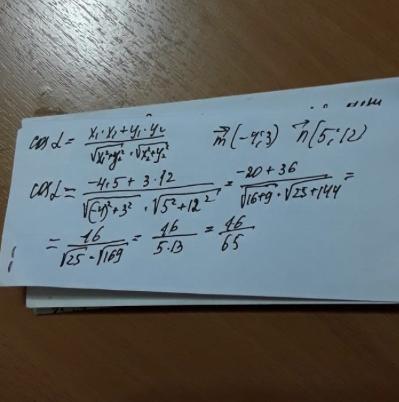 cos α = x₁·x₂+y₁·y₂ / √x₁²+y₁² · √x₂²+y₂² m⃗(-4;3) n⃗(5;12)
cos α = -4·5 + 3·12 / √(-4)²+3² · √5²+12² = -20+36 / √16+9 · √25+144 =
= 16 / √25·√169 = 16 / 5·13 = 16 / 65